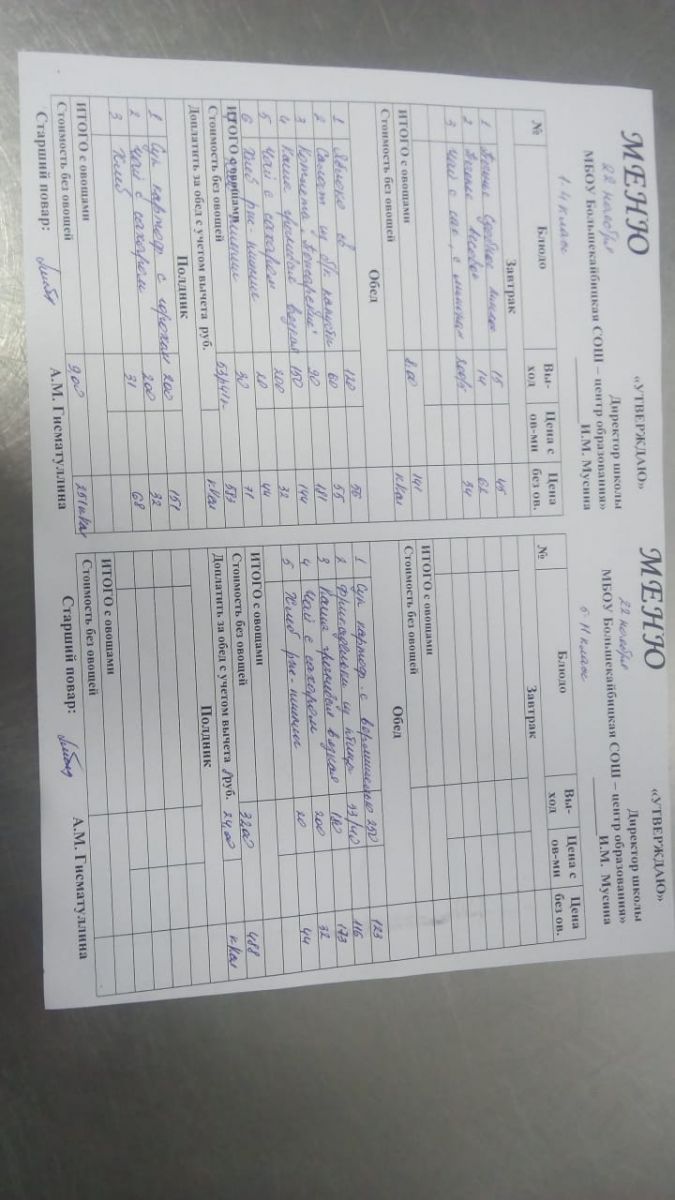 МЕНЮ
«УТВЕРЖДАЮ»
Директор школы
22 ноября
МБОУ Большекайбицкая СОШ – центр образования»
И.М. Мусина
1-4 класс
№ Блюдо Вы-ход Цена с ов-ми Цена без ов.
Завтрак
1 15 45
2 14 62
3 Чай с сах, с 200/5 34
ИТОГО с овощами 141
Стоимость без овощей 8.00 ккал
Обед
1 Яблоко св 120 56
2 Салат из капусты 60 55
3 Котлета 90 181
4 Каша вязкая 150 144
5 Чай с сахаром 200 32
6 Хлеб рж-пшенич 20 44
30 71
ИТОГО с овощами 583
Стоимость без овощей ккал
Доплатить за обед с учетом вычета руб.
Полдник
1 Суп картоф с горохом 200 151
2 Чай с сахаром 200 32
3 Хлеб 31 68
ИТОГО с овощами
Стоимость без овощей 9.00 251 ккал
Старший повар: А.М. Гисматуллина
МЕНЮ
«УТВЕРЖДАЮ»
Директор школы
22 ноября
МБОУ Большекайбицкая СОШ – центр образования»
И.М. Мусина
5-11 класс
№ Блюдо Вы-ход Цена с ов-ми Цена без ов.
Завтрак
ИТОГО с овощами
Стоимость без овощей
Обед
1 Суп картоф. с вермишелью 250 123
2 Фрикадельки из птицы 116
3 Каша гречневая вязкая 180 173
4 Чай с сахаром 200 32
5 Хлеб рж-пшенич 20 44
ИТОГО с овощами 488
Стоимость без овощей 32.00 ккал
Доплатить за обед с учетом вычета руб. 24.00
Полдник
ИТОГО с овощами
Стоимость без овощей
Старший повар: А.М. Гисматуллина